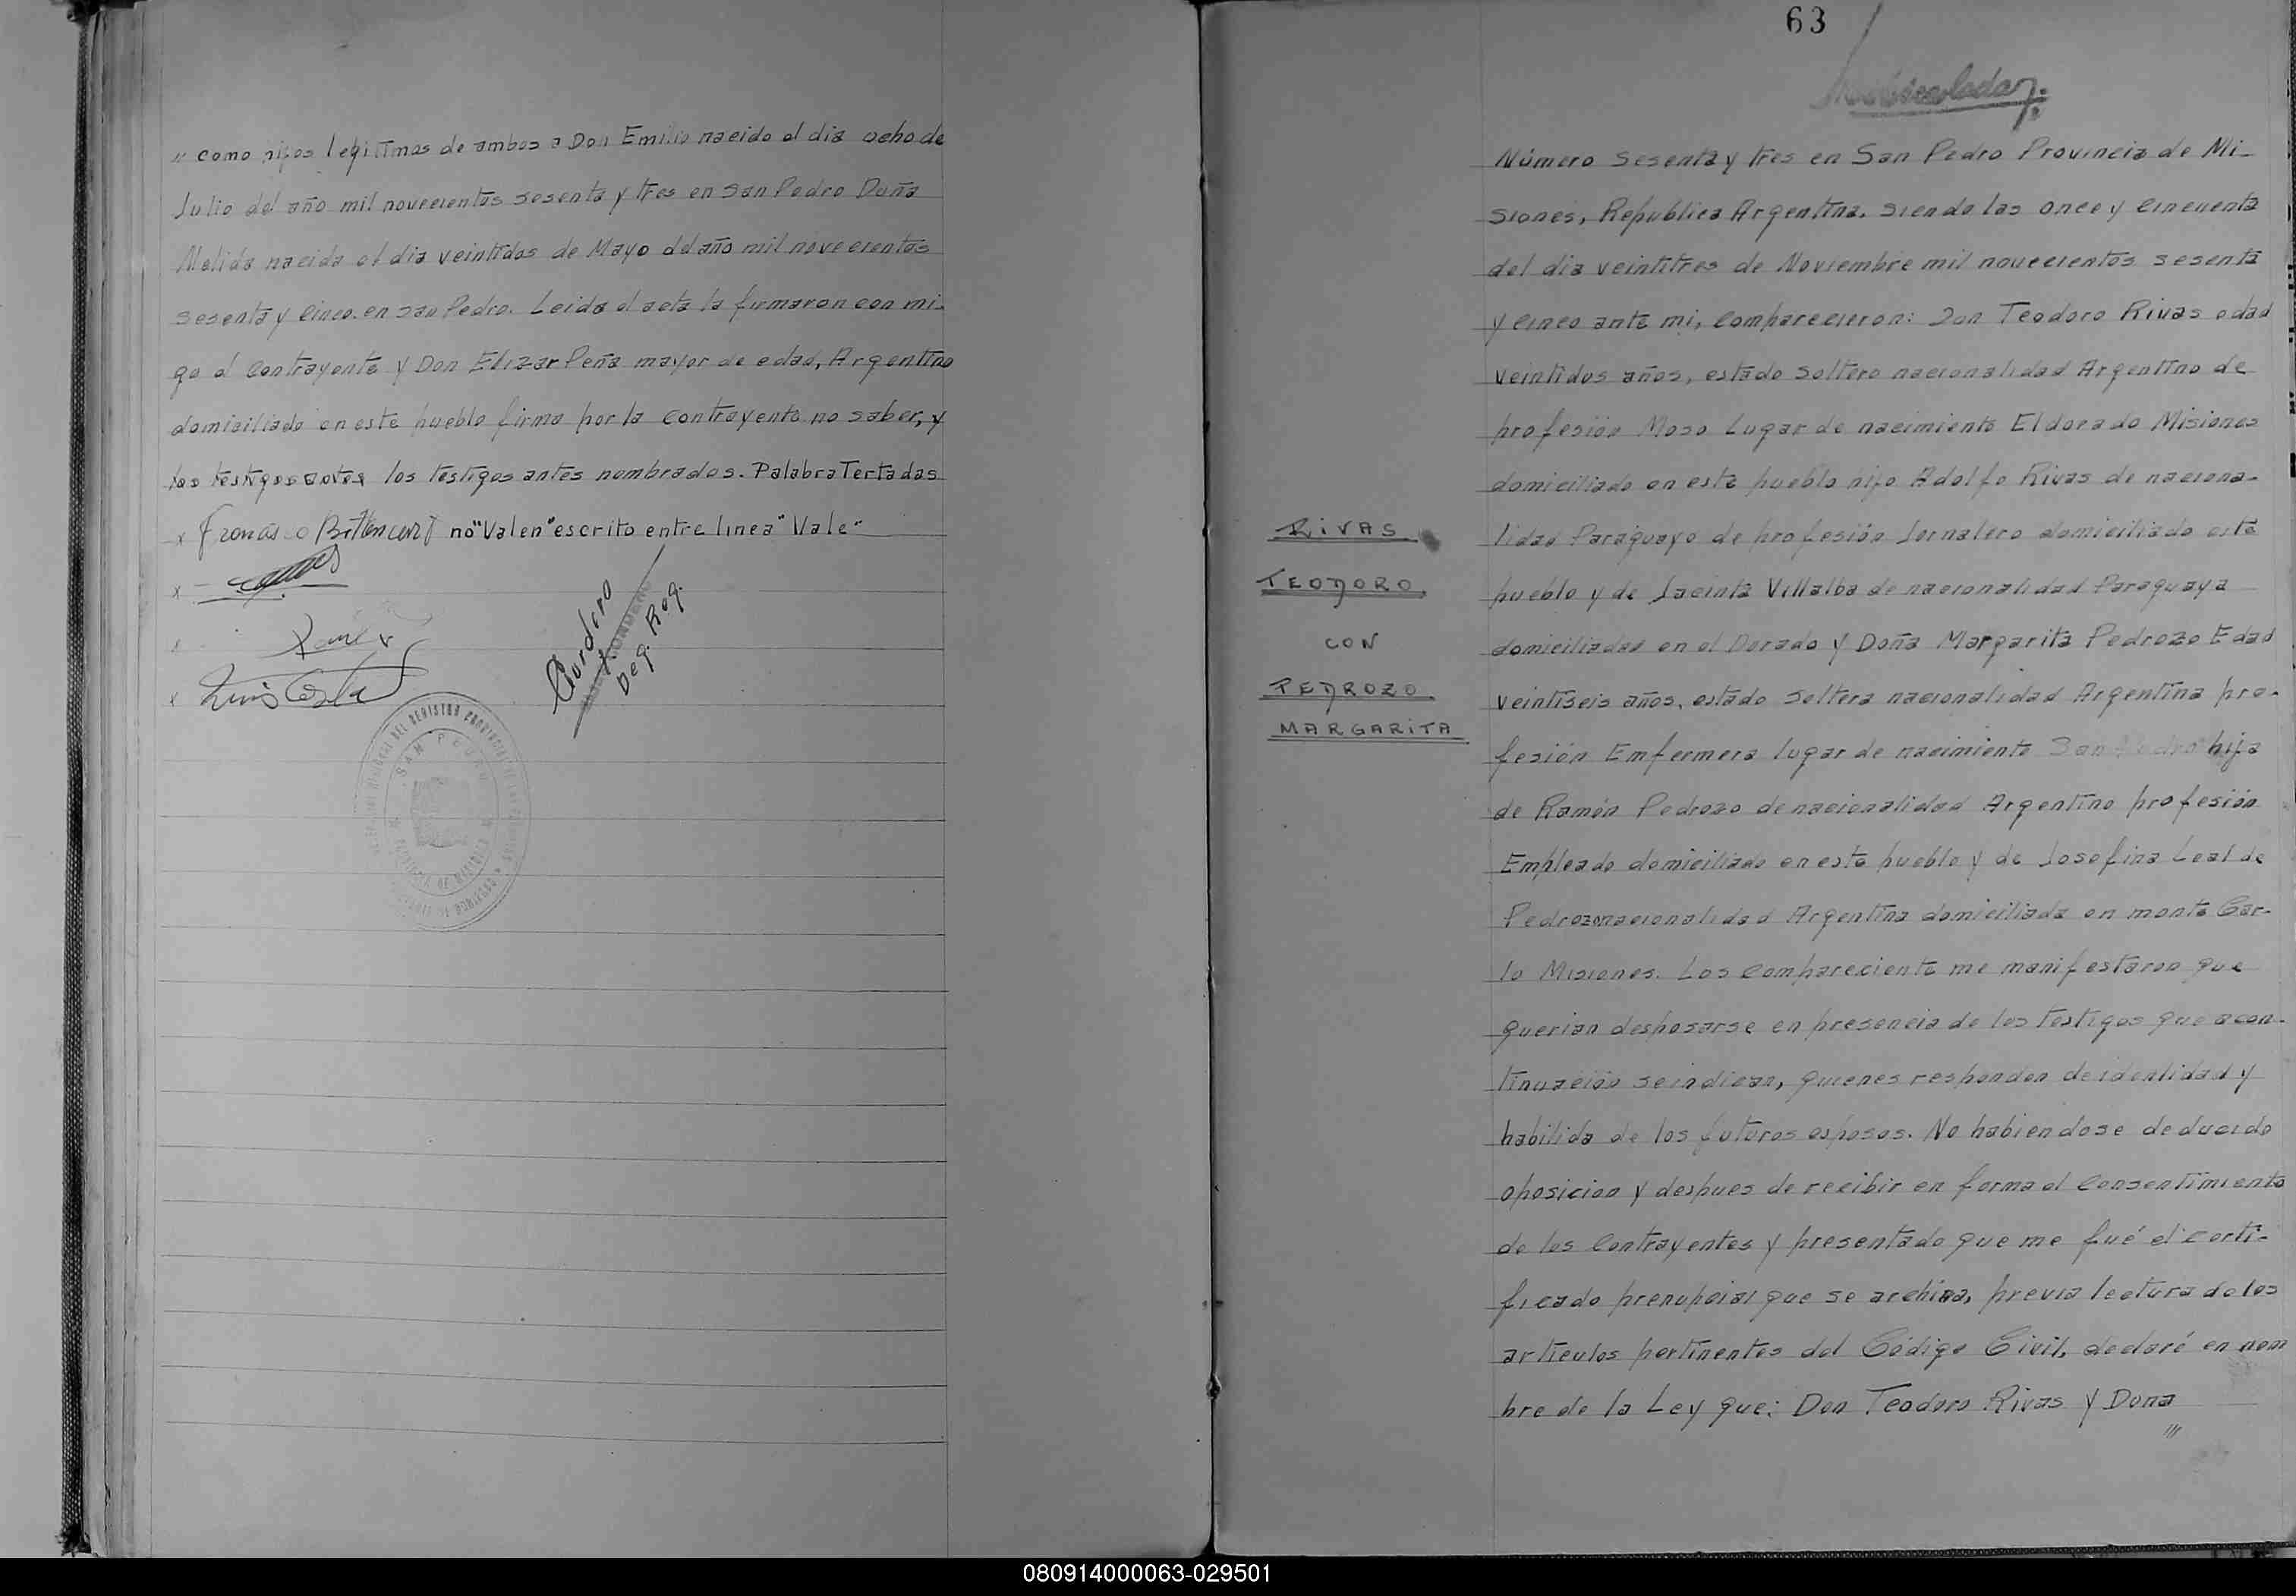 " como hijos legitimos de ambos a Don Emilio nacido el dia ocho de
Julio del año mil novecientos sesenta y tres en San Pedro Doña
Nelida nacida el dia veintidos de Mayo del año mil novecientos
sesenta y cinco en San Pedro. Leida el acta la firmaron con mi-
go el contrayente y Don Elizar Peña mayor de edad, Argentino
domiciliado en este pueblo firma por la contrayente no saber, y
los testigos antes los testigos antes nombrados. Palabra Tertadas
x Bittencurt no "Valen" escrito entre linea "Vale"
x
x
x Luis Costa
Cordero
Deg. Reg.
SAN PEDRO
63
Número sesenta y tres en San Pedro Provincia de Mi-
siones, Republica Argentina, siendo las once y cincuenta
del dia veintitres de Noviembre mil novecientos sesenta
y cinco ante mi, comparecieron: Don Teodoro Rivas edad
veintidos años, estado soltero nacionalidad Argentino de
profesión Moso Lugar de nacimiento Eldorado Misiones
domiciliado en este pueblo hijo Adolfo Rivas de naciona-
lidad Paraguayo de profesión Jornalero domiciliado este
pueblo y de Jacinta Villalba de nacionalidad Paraguaya
domiciliadad en el Dorado y Doña Margarita Pedrozo Edad
veintiseis años, estado soltera nacionalidad Argentina pro-
fesión Emfermera lugar de nacimiento San Pedro hija
de Ramón Pedrozo de nacionalidad Argentino profesión
Empleado domiciliado en este pueblo y de Josefina Leal de
Pedrozo nacionalidad Argentina domiciliada en monte Car-
lo Misiones. Los compareciente me manifestaron que
querian desposarse en presencia de los testigos que acon-
tinuación se indican, quienes responden de identidad y
habilida de los futuros esposos. No habiendose deducido
oposicion y despues de recibir en forma el consentimiento
de los contrayentes y presentado que me fué el certi-
ficado prenupcial que se archiva, previa lectura de los
articulos pertinentes del Código Civil, declaré en nom
bre de la Ley que: Don Teodoro Rivas y Dona
"'
RIVAS
TEODORO
CON
PEDROZO
MARGARITA
080914000063-029501